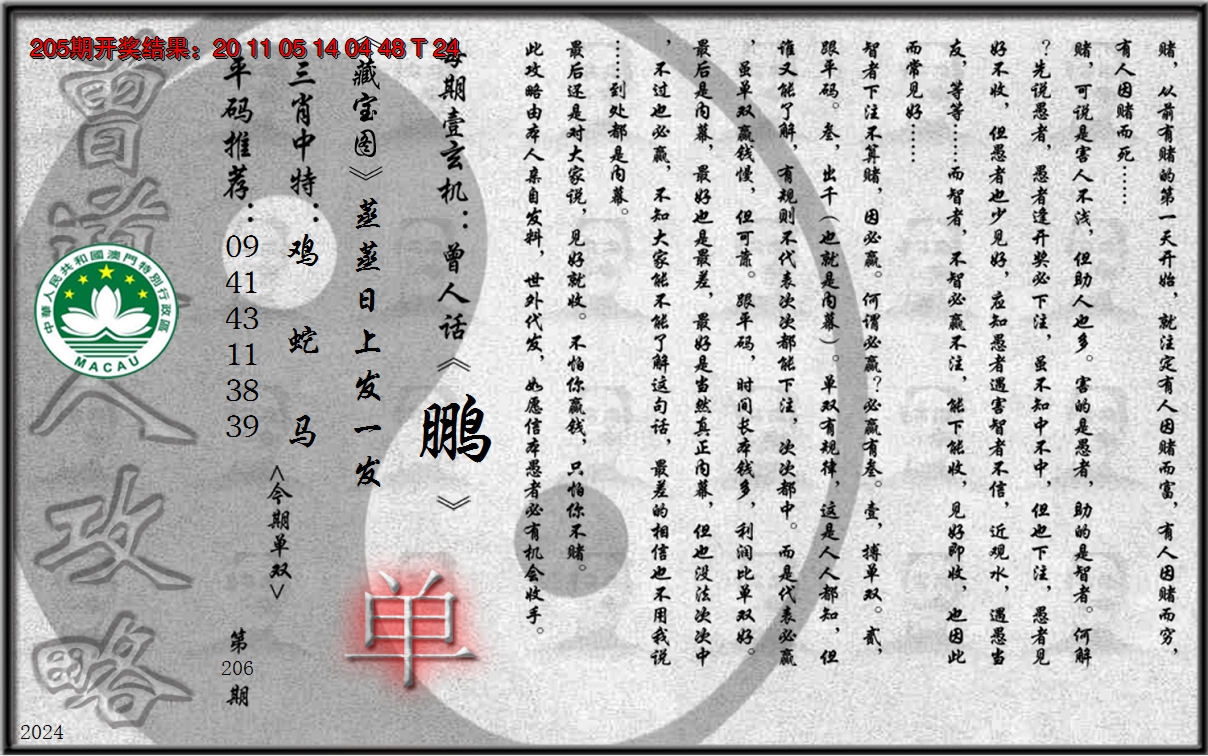 205期开奖结果：20 11 05 14 04 48 T 24
赌，从前有赌的第一天开始，就注定有人因赌而富，有人因赌而穷，
有人因赌而死……
赌，可说是害人不浅，但助人也多。害的是愚者，助的是智者。何解
？先说愚者，愚者逢开奖必下注，虽不知中不中，但也下注，愚者见
好不收，但愚者也少见好，应知愚者遇害智者不信，近观水，遇愚当
友，等等……而智者，不智必赢不注，能下能收，见好即收，也因此
而常见好……
智者下注不算赌，因必赢。何谓必赢？必赢有叁。壹，搏单双。贰，
跟平码。叁，出千（也就是内幕）。单双有规律，这是人人都知，但
谁又能了解，有规则不代表次次都能下注，次次都中。而是代表必赢
，虽单双赢钱慢，但可靠。跟平码，时间长本钱多，利润比单双好。
最后是内幕，最好也是最差，最好是当然真正内幕，但也没法次次中
，不过也必赢，不知大家能不能了解这句话，最差的相信也不用我说
……到处都是内幕。
最后还是对大家说，见好就收。不怕你赢钱，只怕你不赌。
此攻略由本人亲自发料，世外代发，如愿信本愚者必有机会收手。
每期壹玄机：曾人话《鹏》
《藏宝图》蒸蒸日上发一发
单
三肖中特：鸡 蛇 马
<今期单双>
平码推荐：
09
41
43
11
38
39
第
206
期
曾道人攻略
中華人民共和國澳門特別行政區
MACAU
2024